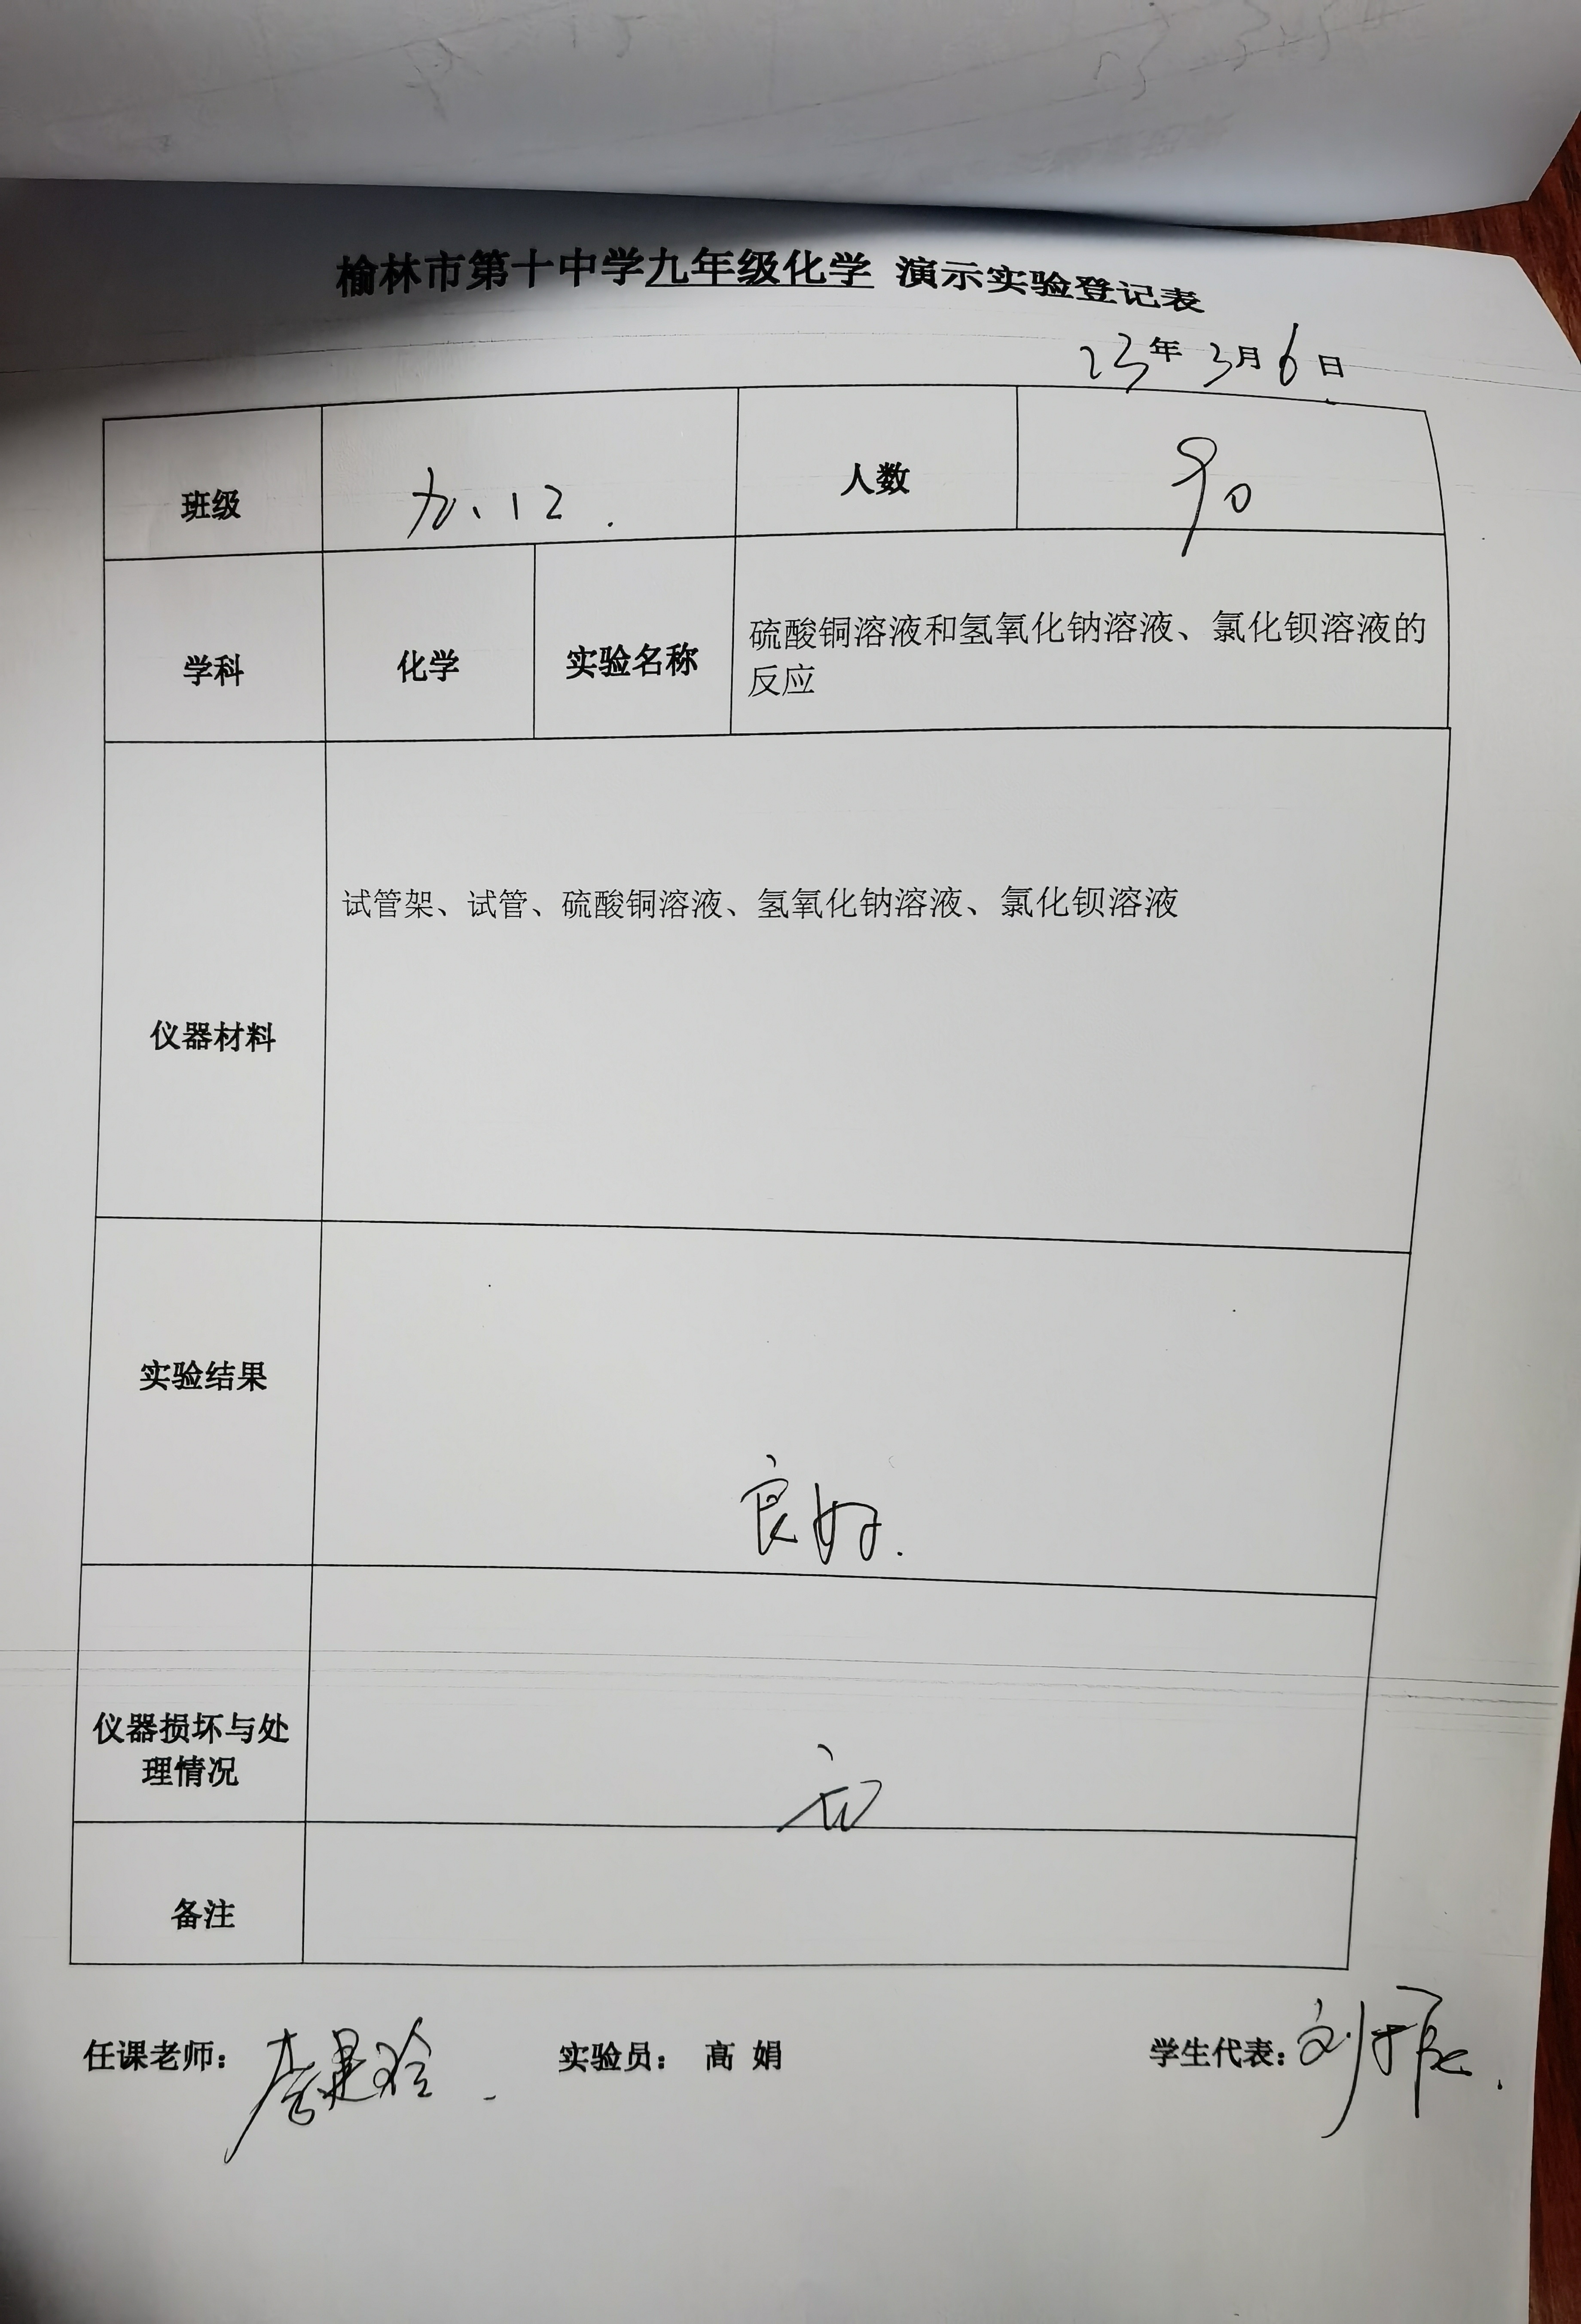 榆林市第十中学九年级化学 演示实验登记表
23年3月6日
班级 九、12. 人数 90
学科 化学 实验名称 硫酸铜溶液和氢氧化钠溶液、氯化钡溶液的
反应
仪器材料 试管架、试管、硫酸铜溶液、氢氧化钠溶液、氯化钡溶液
实验结果 良好.
仪器损坏与处
理情况
备注
任课老师: 实验员: 高 娟 学生代表: